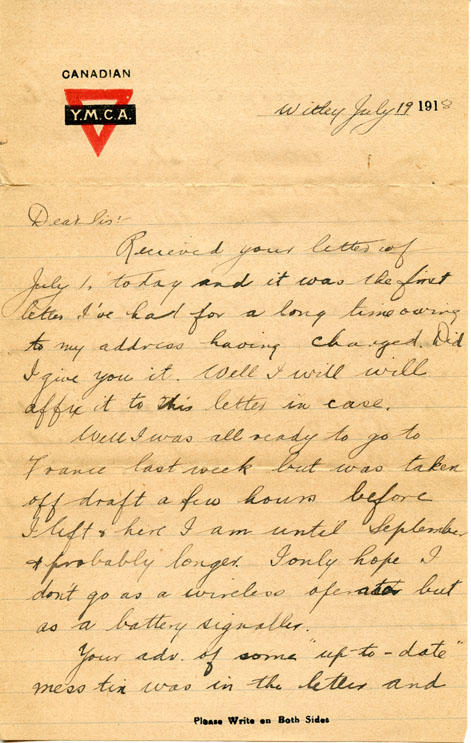 CANADIAN
Y.M.C.A.
Witley July 19 1918
Dear Sis:
Recieved your letter of
July 1, today and it was the first
letter I've had for a long time owing
to my address having changed. Did
I give you it. Well I will will
affix it to this letter in case.
Well I was all ready to go to
France last week but was taken
off draft a few hours before
I left & here I am until September
& probably longer. I only hope I
don't go as a wireless operator but
as a battery signaller.
Your adv. of some "up-to-date"
mess tin was in the letter and
Please Write on Both Sides